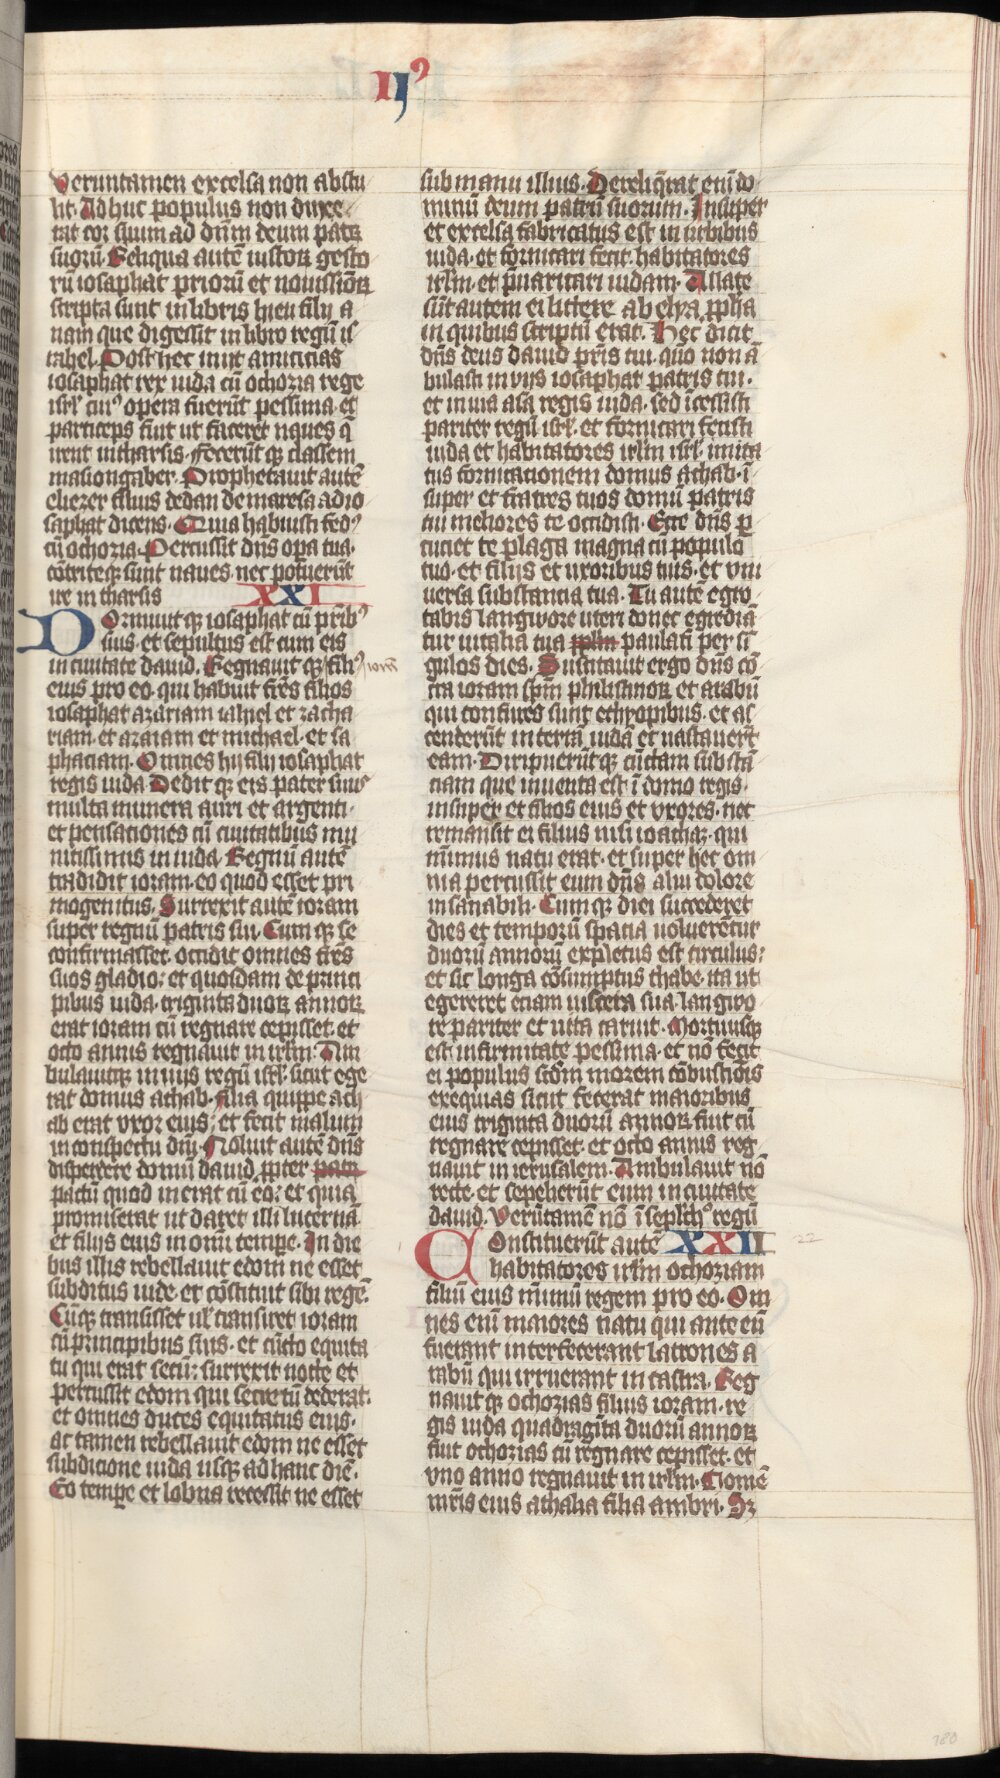 IIꝰ
Veruntamen excelsa non abstu
lit. Adhuc populus non direxe
rat cor suum ad dn̄m deum patꝝ
suoꝝ. Reliqua autē iustoꝝ gesto
rū iosaphat prioꝝ et nouissioꝝ
scripta sunt in libris hieu filij a
nam que digessit in libro regū is
rahel. Post hec iniit amicicias
iosaphat rex iuda cū ochozia rege
isrl' cuiꝰ opera fuerūt pessima. et
particeps fuit ut faceret naues q̄
irent in tharsis. Fecerūt qꝫ classem
in asiongaber. Prophetauit autē
eliezer filius dedan de maresa ad io
saphat dicens. Quia habuisti fedꝰ
cū ochozia. Percussit dn̄s opa tua.
cōtriteqꝫ sunt naues. nec potuerūt
ire in tharsis XXI
Dormiuit qꝫ iosaphat cū pribꝰ
suis. et sepultus est cum eis
in ciuitate dauid. Regnauit qꝫ filiꝰ iorā
eius pro eo. qui habuit frēs filios
iosaphat azariam iahiel et zacha
riam. et azariam et michael. et sa
phaciam. Omnes hij filij iosaphat
regis iuda Dedit qꝫ eis pater suus
multa munera auri et argenti.
et pensationes cū ciuitatibus mu
nitissimis in iuda. Regnū autē
tradidit ioram. eo quod esset pri
mogenitus. Surrexit autē ioram
super regnū patris sui. Cum qꝫ se
confirmasset. occidit omnes frēs
suos gladio: et quosdam de princi
pibus iuda. triginta duoꝝ annoꝝ
erat ioram cū regnare cepisset. et
octo annis regnauit in irl̄m. Am
bulauitqꝫ in vijs regū isrl'. sicut ege
rat domus achab. filia quippe ach
ab erat vxor eius. et fecit malum
in conspectu dn̄i. Noluit autē dn̄s
disperdere domū dauid ꝓpter patꝝ
pactū quod inierat cū eo: et quia
promiserat ut daret illi lucernā
et filijs eius in omī tempe. In die
bus illis rebellauit edom ne esset
subditus iude. et cōstituit sibi regē.
Cūqꝫ transisset ul' transiret ioram
cū principibus suis. et cūcto equita
tu qui erat secū: surrexit nocte et
percussit edom qui se circū dederat.
et omnes duces equitatus eius.
at tamen rebellauit edom ne esset
subdicione iuda usqꝫ ad hanc diē.
Eo tempe et lobna recessit ne esset
sub manu illius. Dereliq̄rat enī do
minū deum patrū suorum. Insuper
et excelsa fabricatus est in urbibus
iuda. et fornicari fecit. habitatores
irl̄m. et p̄uaricari iudam. Allate
sūt autem ei littere ab elya ꝓpha
in quibus scriptū erat. Hec dicit
dn̄s deus dauid pr̄is tui. quo non ā
bulasti in vijs iosaphat patris tui.
et in via asa regis iuda. sed īcessisti
pariter regū isrl'. et fornicari fecisti
iuda et habitatores irl̄m isrl'. imita
tus fornicationem domus achab. ī
super et fratres tuos domū patris
tui meliores te occidisti. Ecce dn̄s ꝑ
cuciet te plaga magna cū populo
tuo. et filijs et vxoribus tuis. et vni
uersa substancia tua. Tu autē egro
tabis langwore uteri donec egredia
tur vitalia tua paulati per si
gulos dies. Suscitauit ergo dn̄s cō
tra ioram sp̄m philistinoꝝ et arabū
qui confines sunt ethyopibus. et as
cenderūt in terrā iuda et uastauerūt
eam. Diripuerūt qꝫ cūctam substā
ciam que inuenta est ī domo regis.
insuper et filios eius et vxores. nec
remansit ei filius nisi ioachaz. qui
minimus natu erat. et super hec om
nia percussit eum dn̄s alui dolore
insanabili. Cum qꝫ diei succederet
dies et temporū spacia uoluerētur
duorū annorū expletus est circulus:
et sic longa cōsumptus thabe. ita ut
egereret etiam uiscera sua. langwo
re pariter et uita caruit. Mortuusqꝫ
est infirmitate pessima. et nō fecit
ei populus scdm morem cōbustiōis
exequias sicut fecerat maioribus
eius triginta duorū annoꝝ fuit cū
regnare cepisset. et octo annis reg
nauit in ierusalem. Ambulauit nō
recte. et sepelierūt eum in ciuitate
dauid. Verūtamē nō ī seplch̄ꝰ regū
Constituerūt autē XXII 22
habitatores irl̄m ochoziam
filiū eius mīmū regem pro eo. Om
nes enī maiores natu qui ante eū
fuerant interfecerant latrones a
rabū qui irruerant in castra. Reg
nauit qꝫ ochozias filius ioram. re
gis iuda quadragīta duorū annoꝝ
fuit ochozias cū regnare cepisset. et
vno anno regnauit in irl̄m. Nomē
mr̄is eius athalia filia ambri. Sꝫ